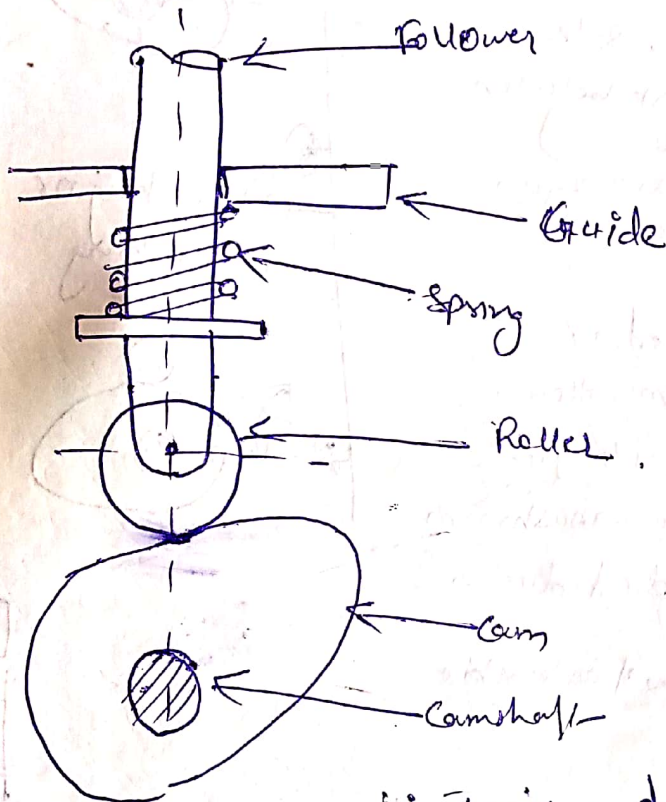 Follower
Guide
Spring
Roller
Cam
Camshaft